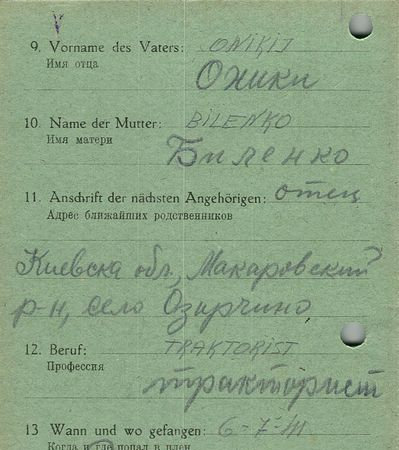 9. Vorname des Vaters: ONIKIJ
Имя отца Оники
10. Name der Mutter: BILENKO
Имя матери Биленко
11. Anschrift der nächsten Angehörigen: отец
Адрес ближайших родственников
Киевска обл., Макаровский
р-н, село Озирчино
12. Beruf: TRAKTORIST
Профессия тракторист
13 Wann und wo gefangen: 6-7-
Когда и где попал в плен